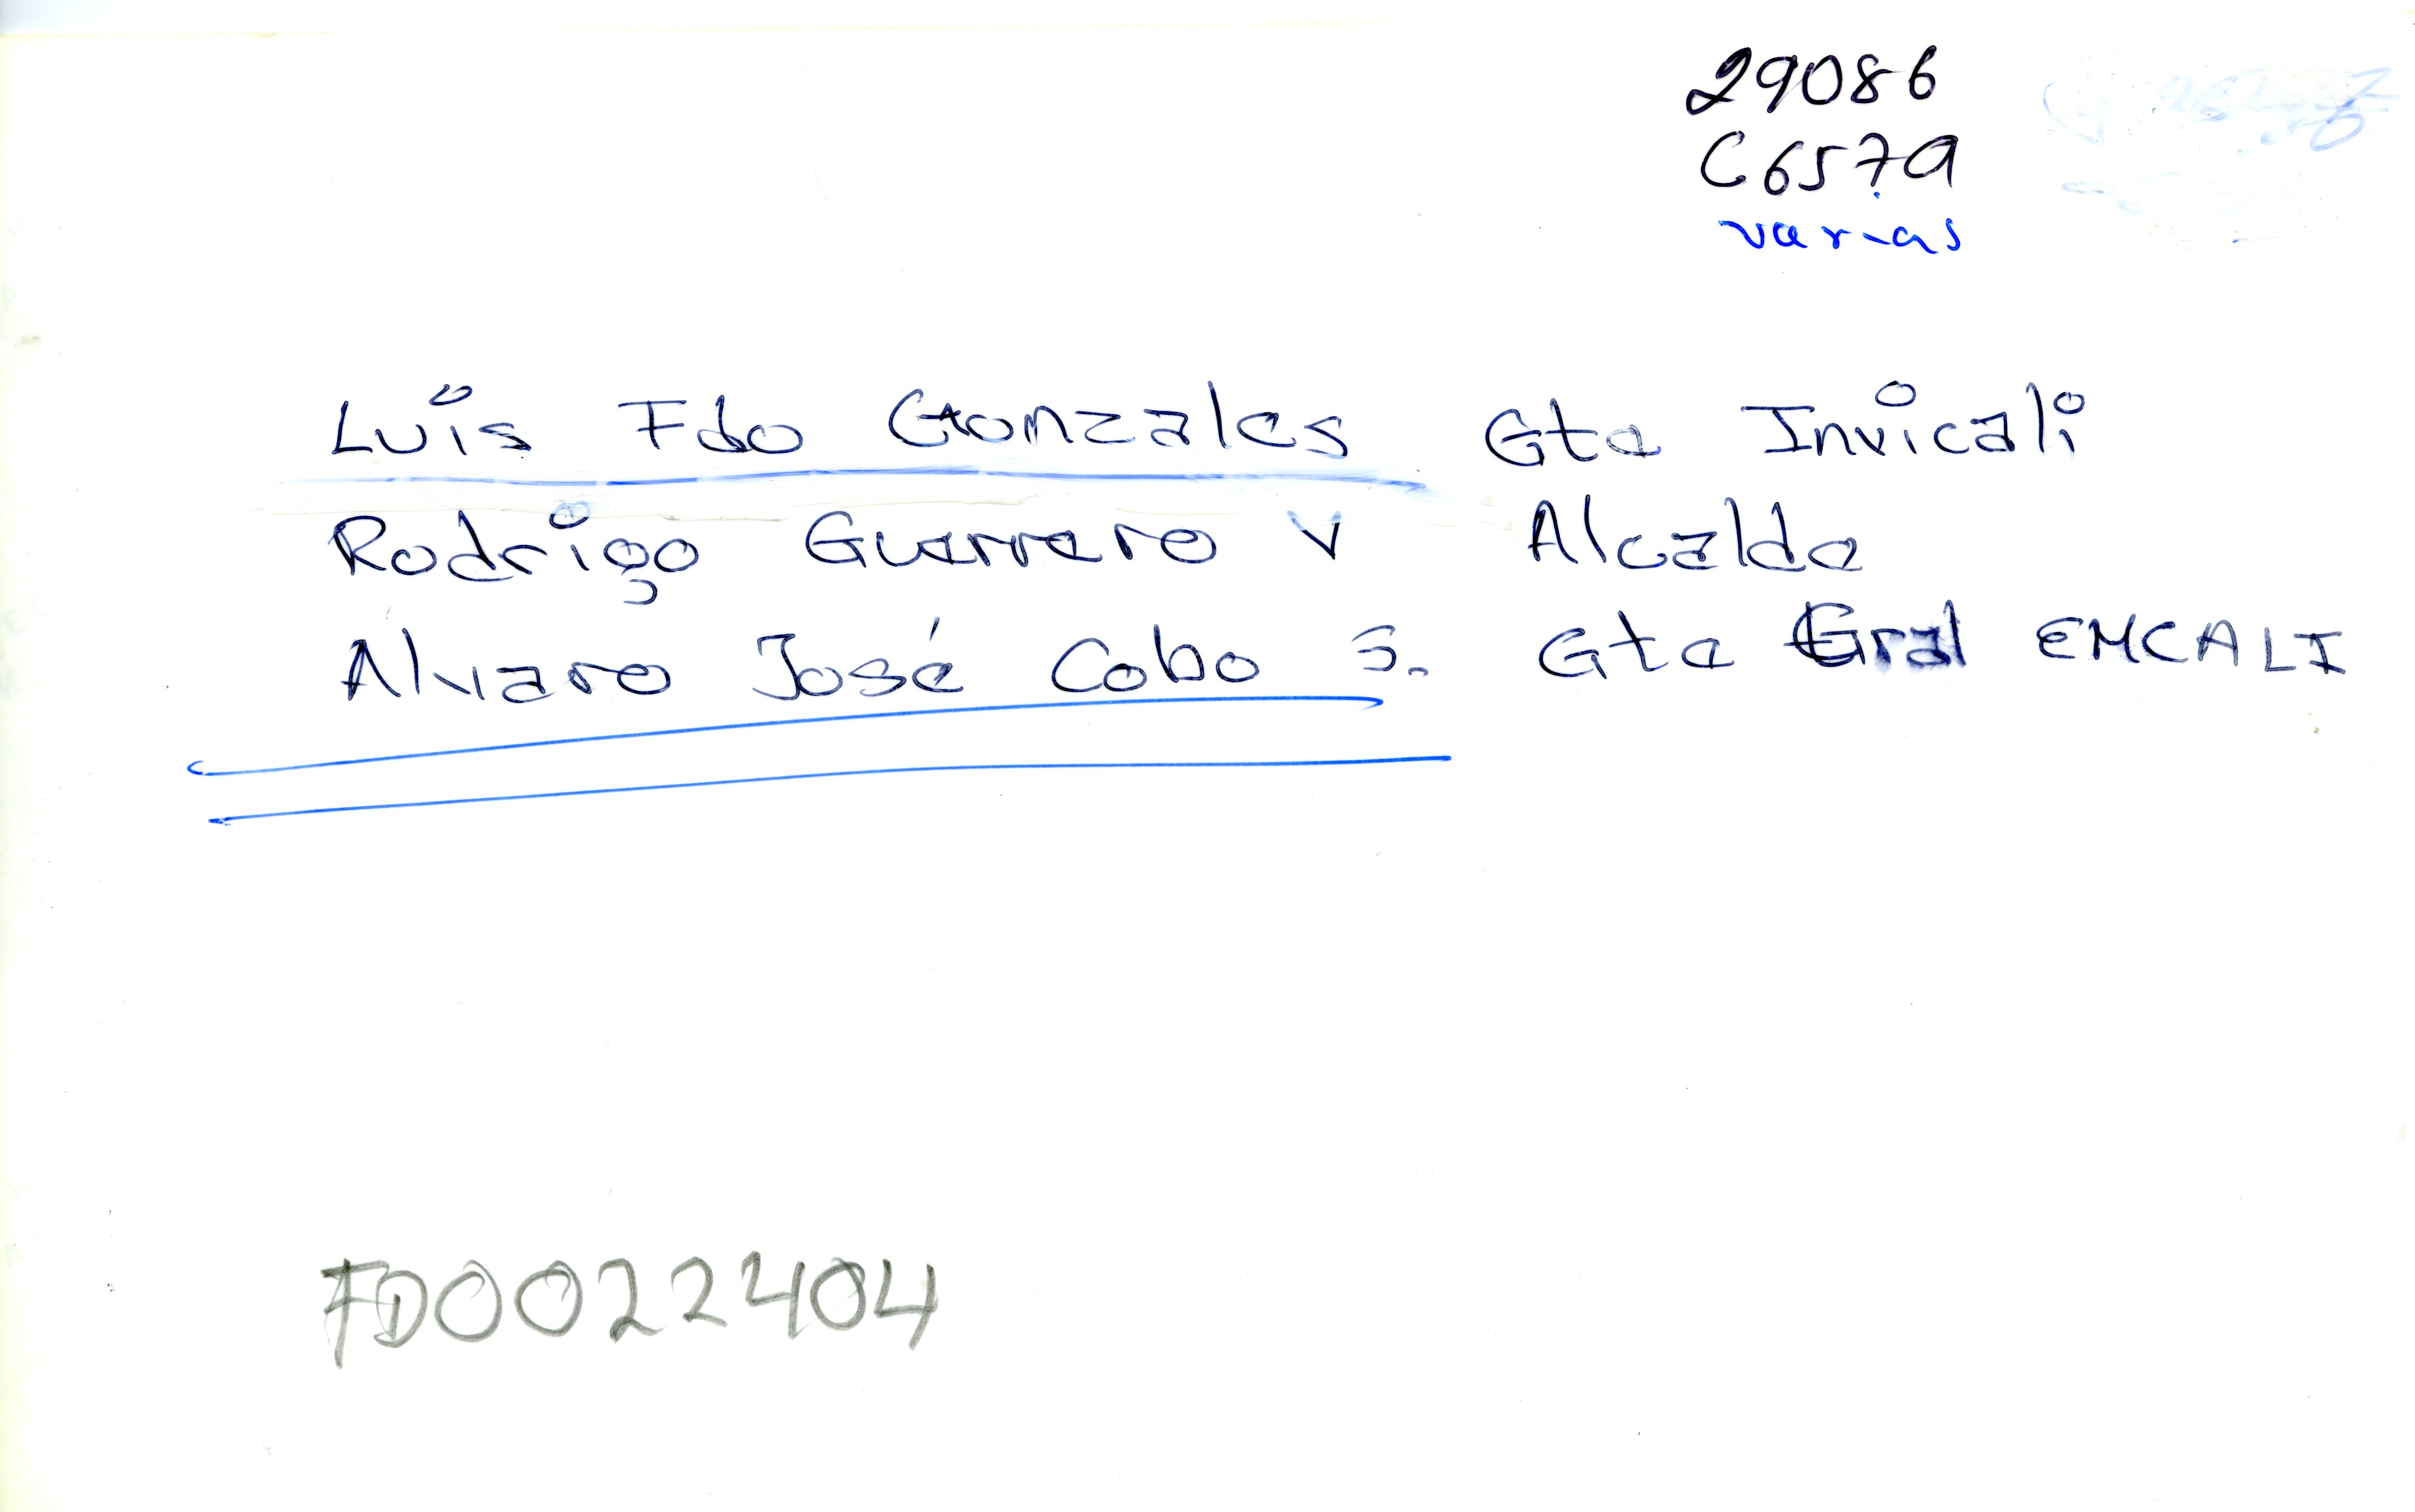 29086
C657a
varias
Luis Fdo Gonzales Gte Invicali
Rodrigo Guerrero V Alcalde
Alvaro José Cobo S. Gte Gral EMCALI
FD0022404